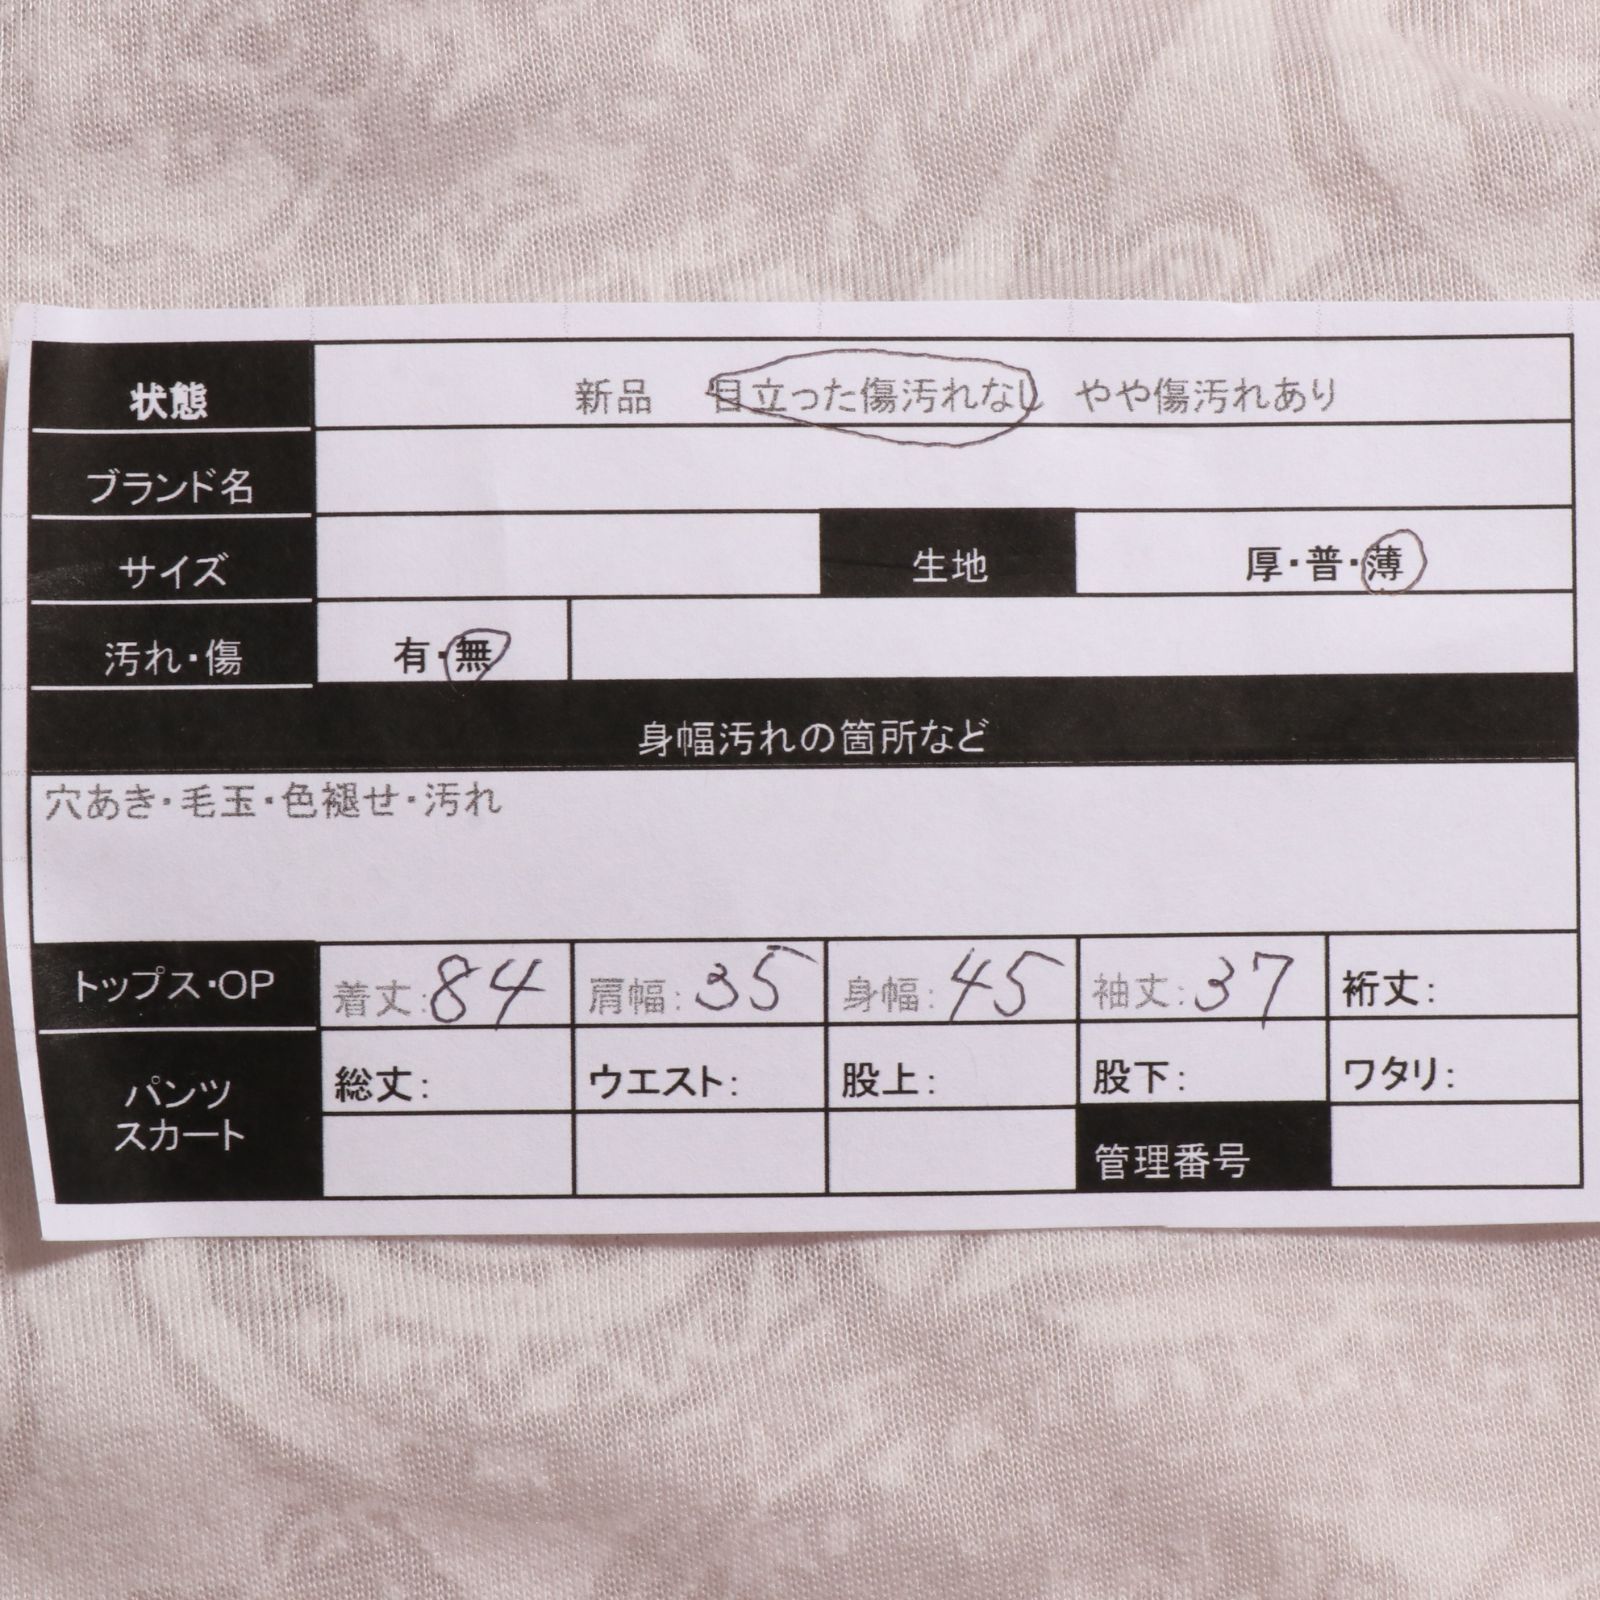 状態 新品 目立った傷汚れなし やや傷汚れあり
ブランド名
サイズ 生地 厚・普・薄
汚れ・傷 有・無
身幅汚れの箇所など
穴あき・毛玉・色褪せ・汚れ
トップス・OP 着丈:84 肩幅:35 身幅:45 袖丈:37 裄丈:
パンツ
スカート
総丈: ウエスト: 股上: 股下: ワタリ:
管理番号